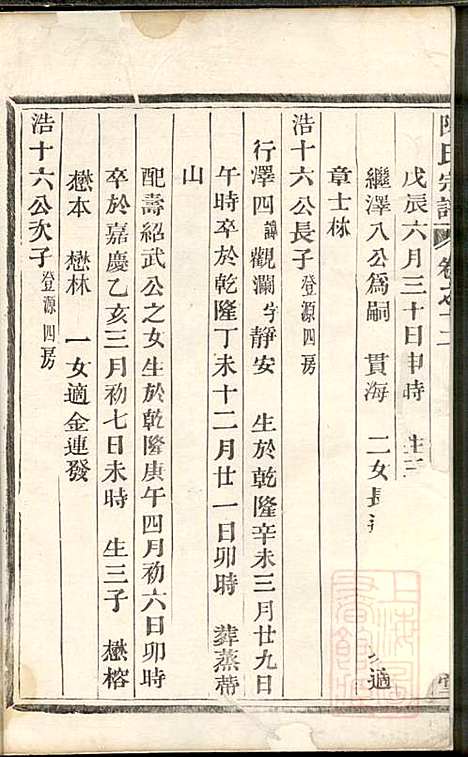 陳氏宗譜 卷之十二
戊辰六月三十日申時 生三
繼澤八公爲嗣 貫海 二女長適
適
章士校
浩十六公長子登源四房
行澤四諱觀瀾字靜安 生於乾隆辛未三月廿九日
午時卒於乾隆丁未十二月廿一日卯時 葬蒸帶
山
配壽紹武公之女生於乾隆庚午四月初六日卯時
卒於嘉慶乙亥三月初七日未時 生三子 懋榕
懋本 懋林 一女適金連發
浩十六公次子登源四房